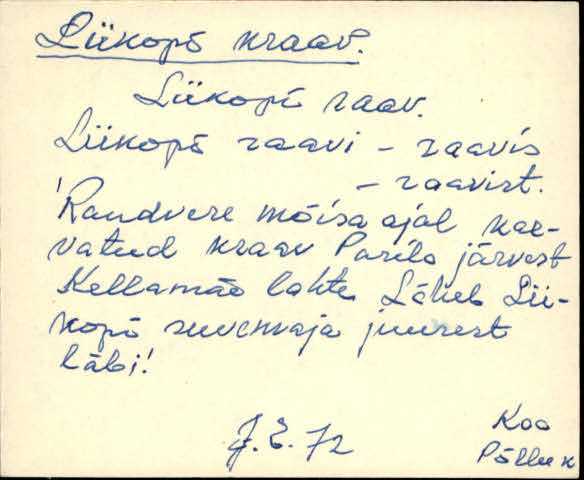 Liikopõ kraav.
Liikopõ raav.
Liikopõ raavi – raavis
– raavist.
'Randvere mõisa ajal kae-
vatud kraav Parila järvest
Kellamäe lahte. Läheb Lii-
kopõ suvemaja juurest
läbi!
J.E.72
Koo
Põlluk